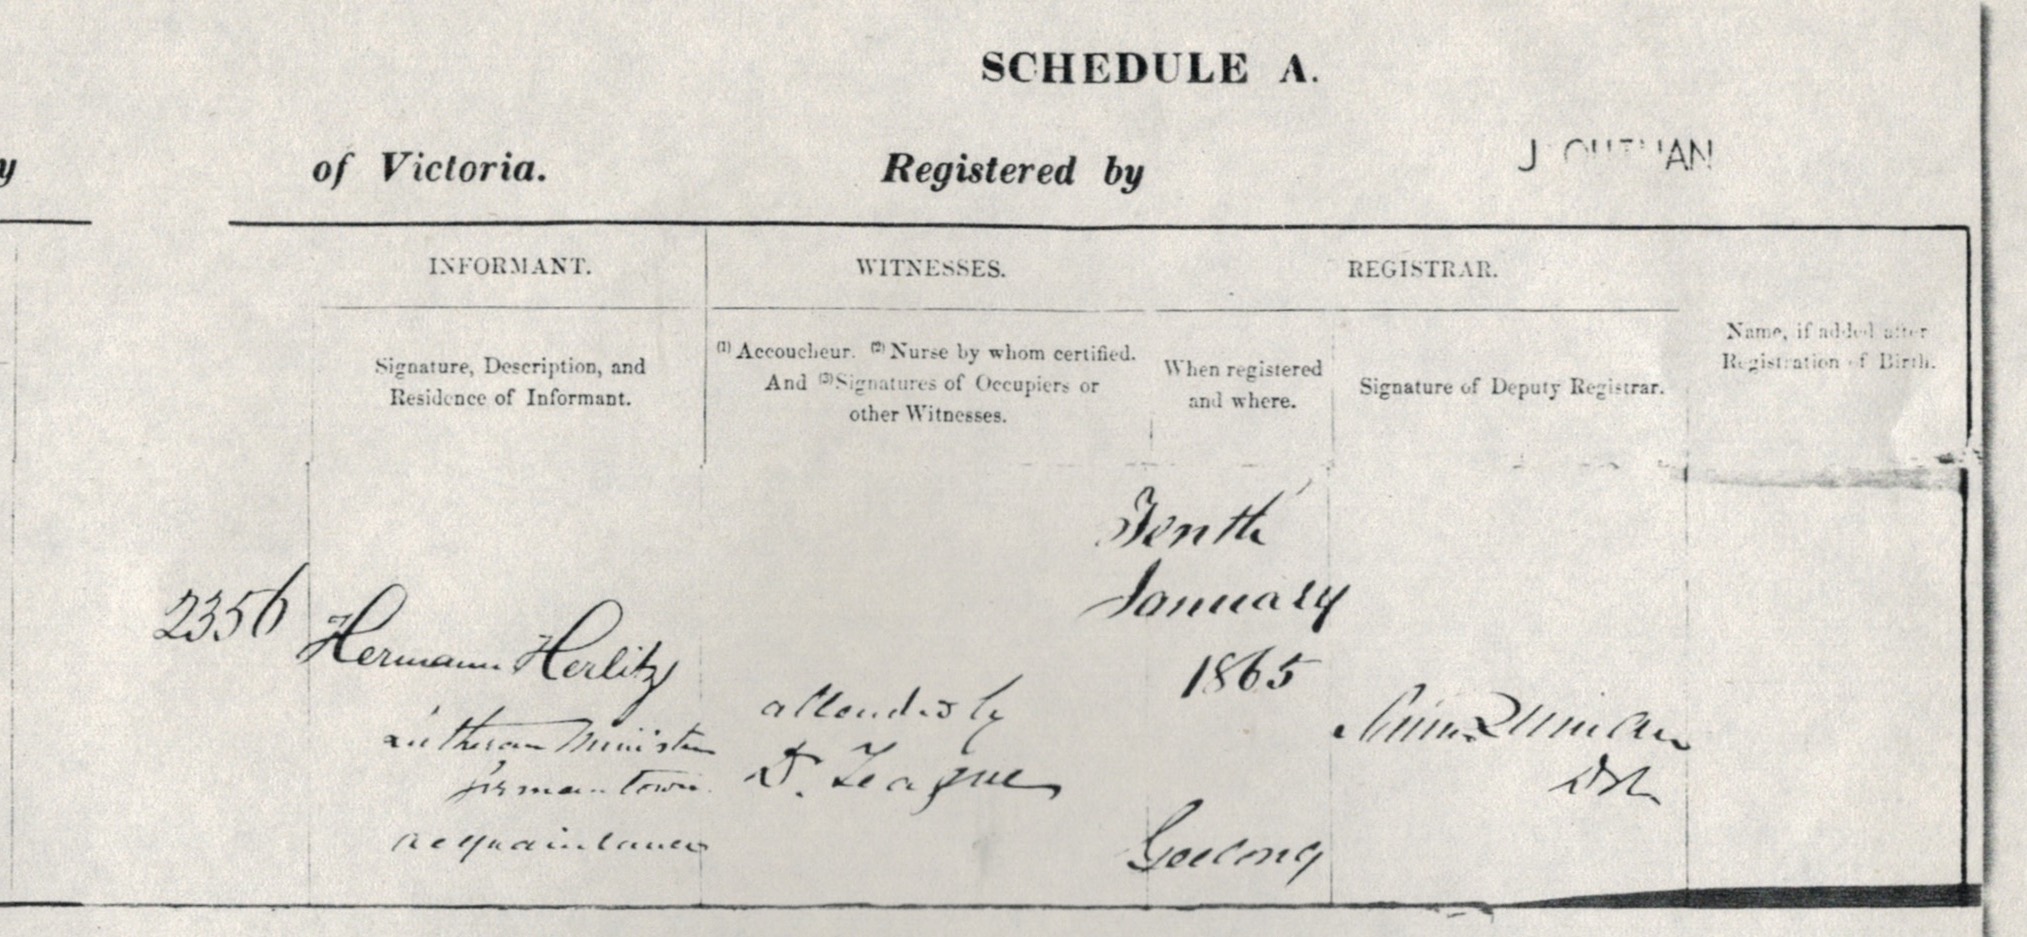 SCHEDULE A.
y of Victoria. Registered by
INFORMANT. WITNESSES. REGISTRAR.
Signature, Description, and
Residence of Informant.
(1) Accoucheur. (2) Nurse by whom certified.
And (3) Signatures of Occupiers or
other Witnesses.
When registered
and where.
Signature of Deputy Registrar.
Name, if added after
Registration of Birth.
2356
Hermann Herlitz
Lutheran Minister
Germantown
acquaintance
attended by
Dr. Teague
Tenth
January
1865
Geelong